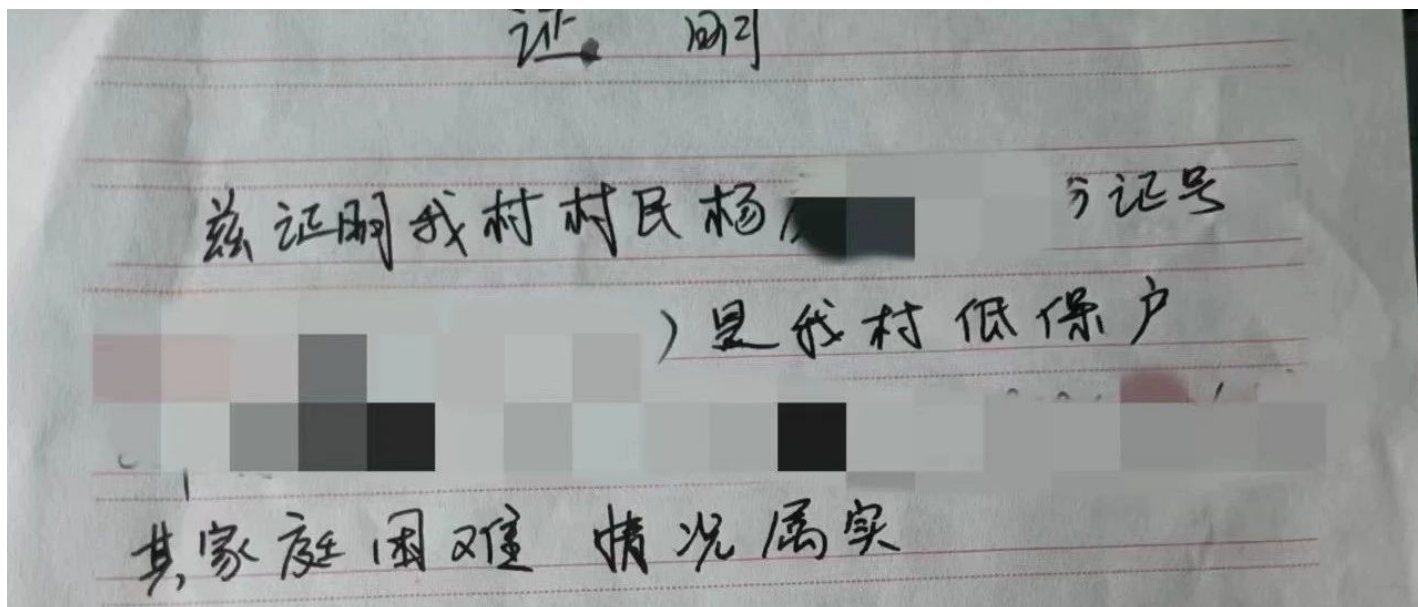 证明
兹证明我村村民杨
证号
）是我村低保户
其家庭困难 情况属实